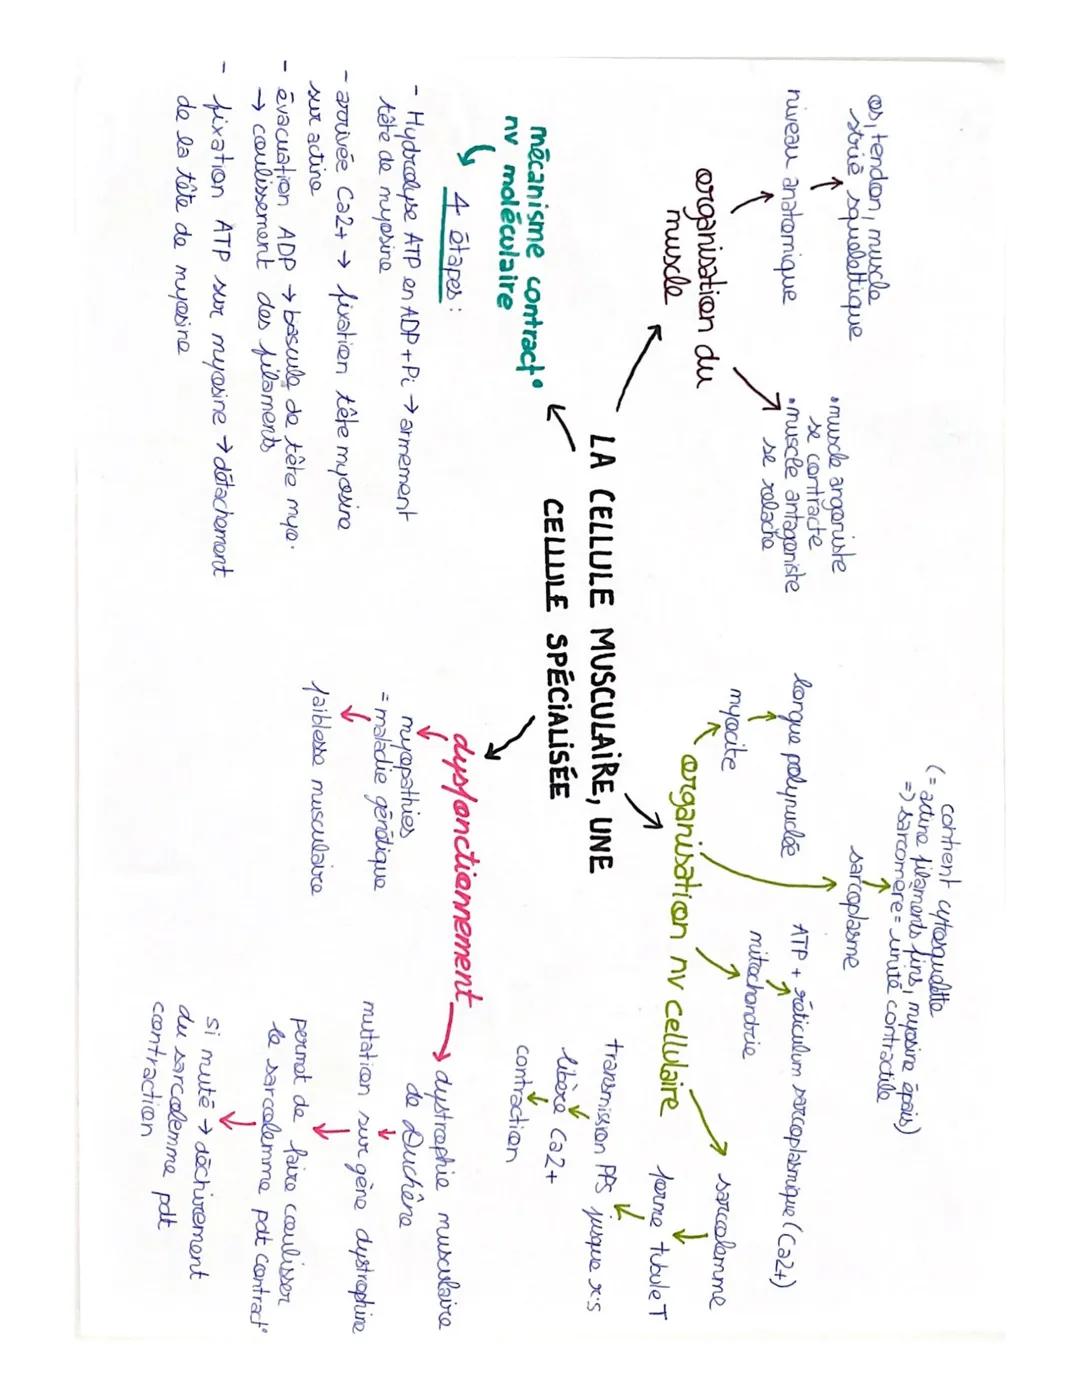 LA CELLULE MUSCULAIRE, UNE
CELLULE SPÉCIALISÉE
organisation du
muscle
niveau anatomique
os, tendon, muscle
strié squelettique
• muscle angoniste
se contracte
• muscle antagoniste
se relache
organisation nv cellulaire
myocite
longue polynuclée
sarcoplasme
contient cytosquelette
(= actine filaments fins, myosine épais)
=> sarcomère = unité contractile
mitochondrie
ATP + réticulum sarcoplasmique (Ca2+)
sarcolemme
forme tubule T
transmission PPS jusque r.s
libère Ca2+
contraction
mécanisme contract°
nv moléculaire
4 étapes :
- Hydrolyse ATP en ADP + Pi → armement
tête de myosine
- arrivée Ca2+ → fixation tête myosine
sur actine
- évacuation ADP → bascule de tête myo.
→ coulissement des filaments
- fixation ATP sur myosine → détachement
de la tête de myosine
dysfonctionnement
myopathies
= maladie génétique
faiblesse musculaire
dystrophie musculaire
de Duchêne
mutation sur gène dystrophine
permet de faire coulisser
le sarcolemme pdt contract°
si muté → déchirement
du sarcolemme pdt
contraction